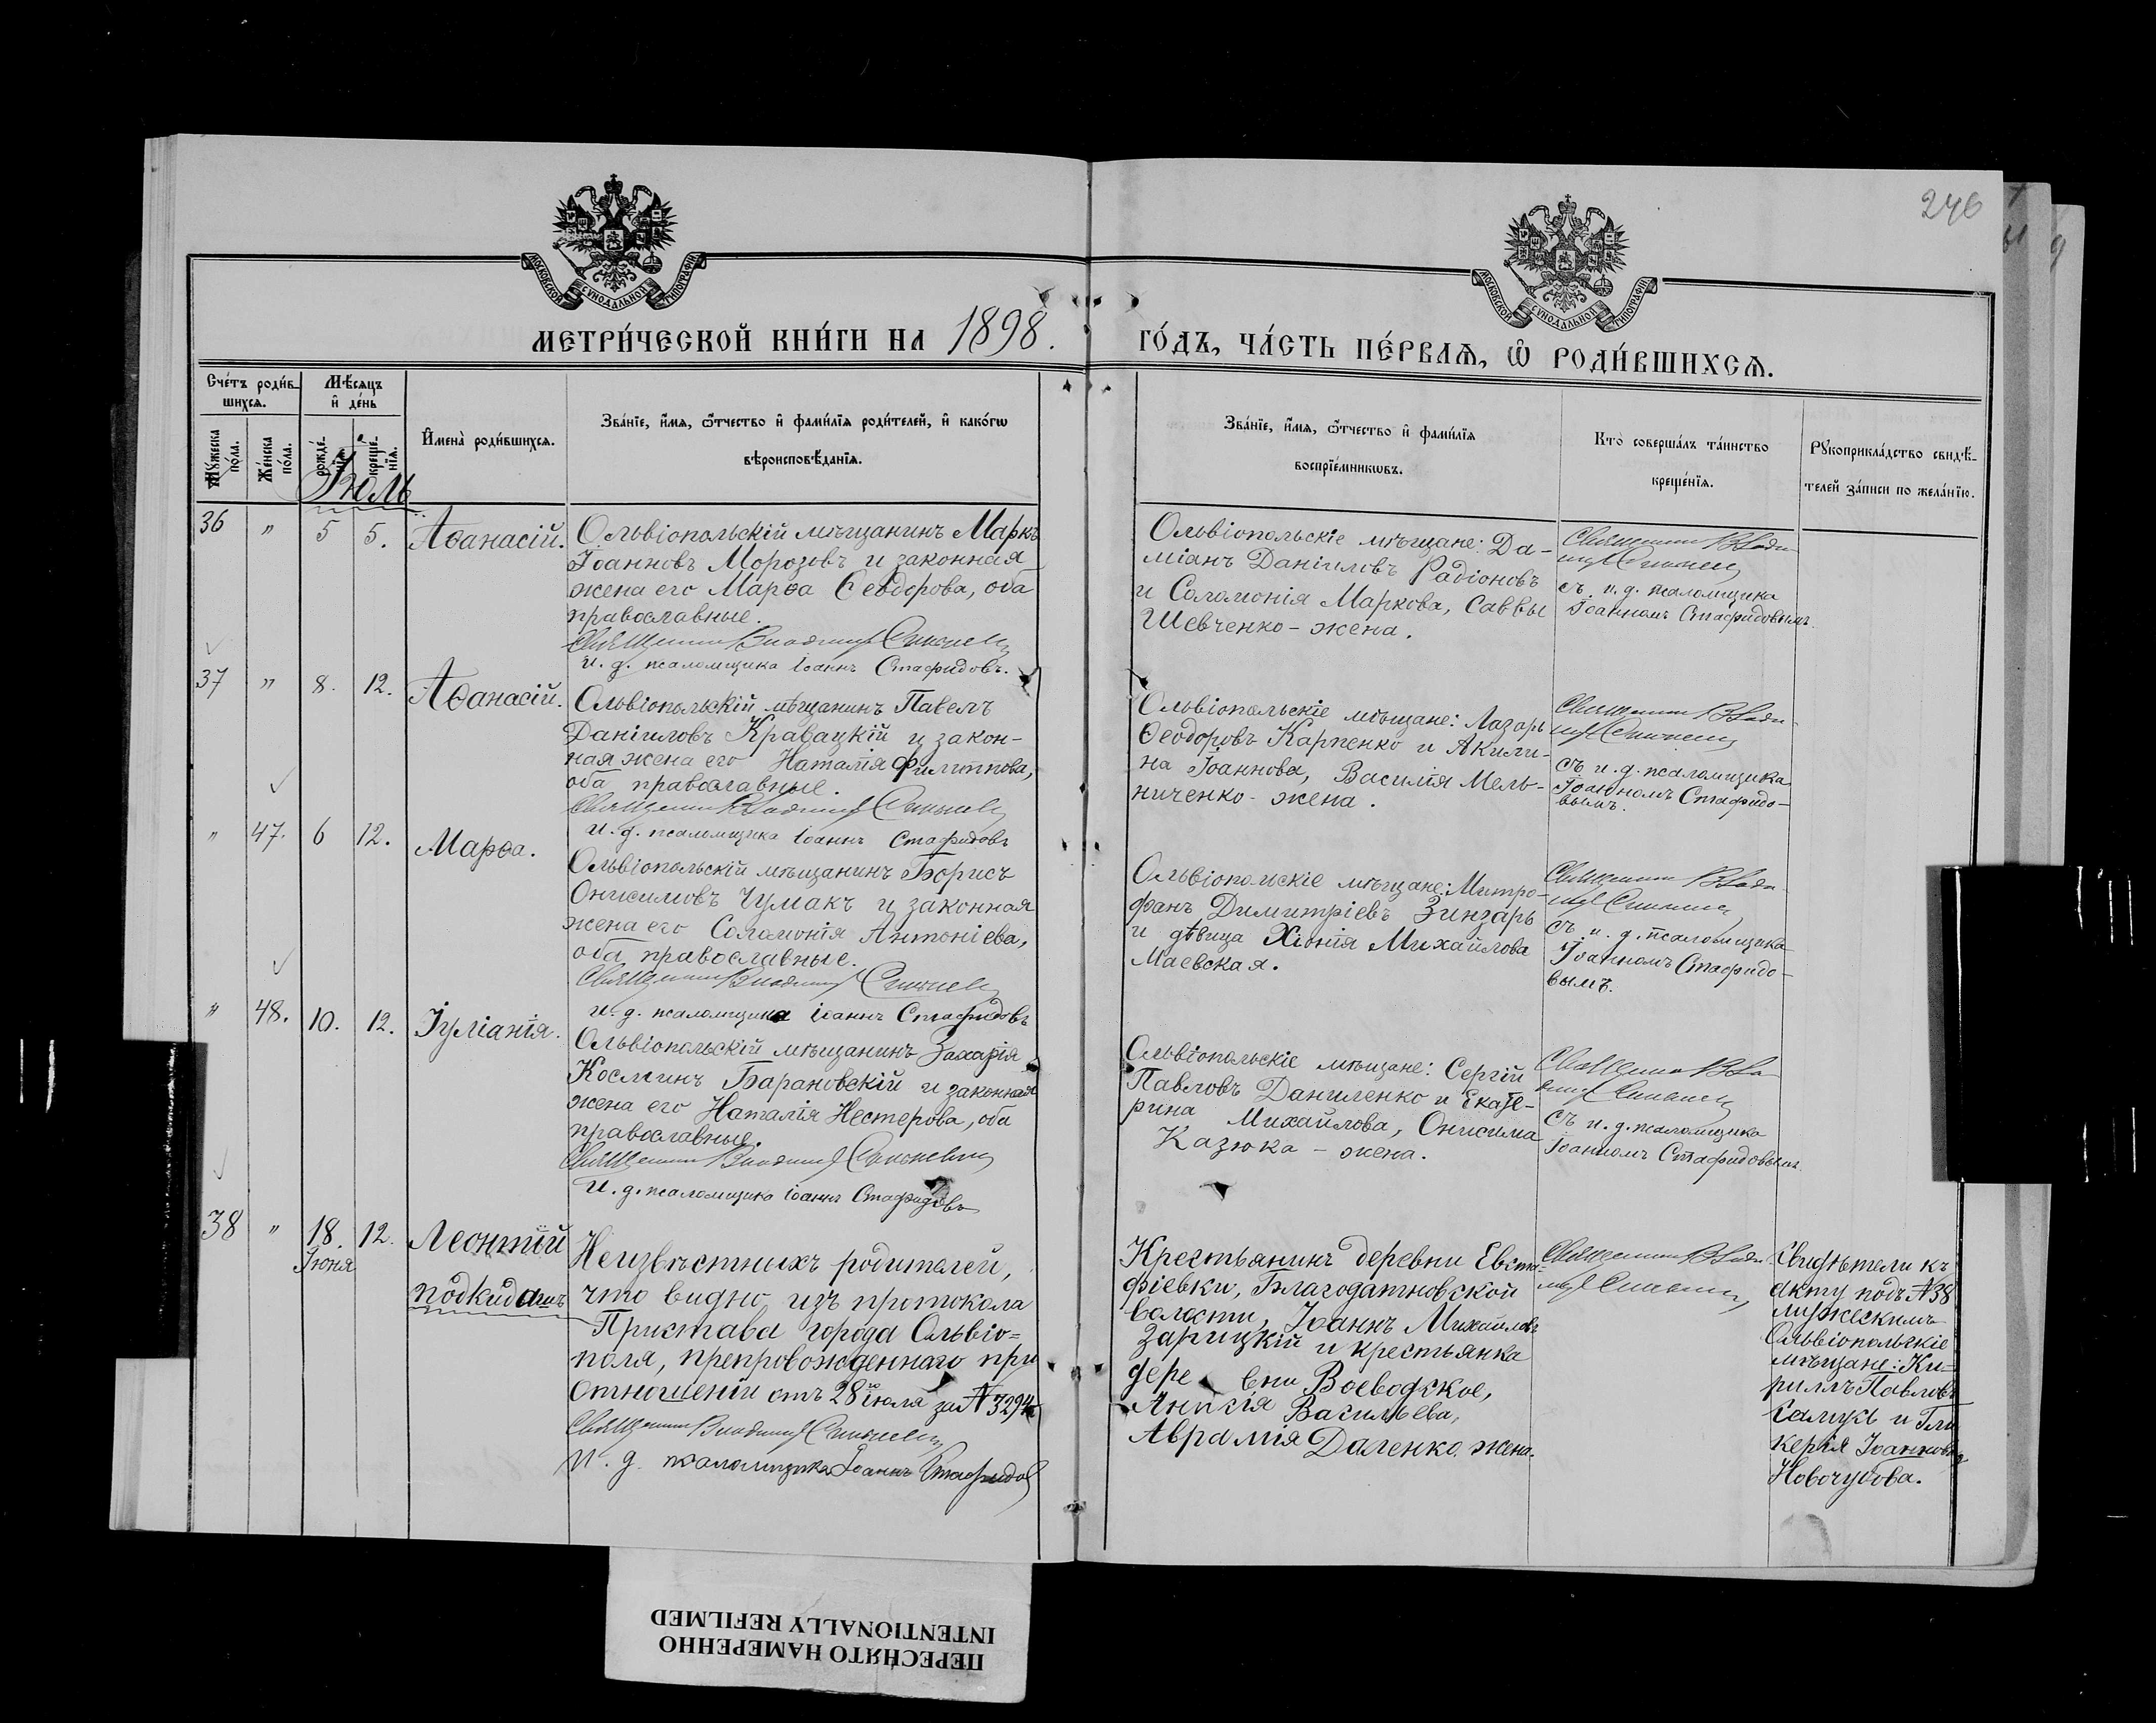 246
МОСКОВСКОЙ СѴНОДАЛЬНОЙ ТИПОГРАФІИ
МОСКОВСКОЙ СѴНОДАЛЬНОЙ ТИПОГРАФІИ
МЕТРИ́ЧЕСКОЙ КНИ́ГИ НА 1898.
ГО́ДЪ, ЧА́СТЬ ПЕ́РВАѦ, Ѡ҆ РОДИ́ВШИХСѦ.
Сче́тъ роди́в-
шихсѧ.
Мѣ́сяцъ
и҆ де́нь
Мꙋ́жеска
по́ла.
Же́нска
по́ла.
рожде́-
нїѧ.
креще́-
нїѧ.
И҆мена̀ роди́вшихсѧ.
Зва́нїе, и҆́мѧ, ѻ҆́тчество и҆ фами́лїѧ роди́телей, и҆ како́гѡ
вѣроисповѣ́данїѧ.
Зва́нїе, и҆́мѧ, ѻ҆́тчество и҆ фами́лїѧ
воспрїе́мникѡвъ.
Кто̀ соверша́лъ та́инство
креще́нїѧ.
Рꙋкоприкла́дство свидѣ́-
телей за́писи по жела́нїю.
Іюль
36 " 5 5. Аѳанасій.
Ольвіопольскій мѣщанинъ Маркъ
Іоанновъ Морозовъ и законная
жена его Марѳа Ѳеодорова, оба
православные.
Священникъ Владимір
и. д. псаломщика Іоаннъ Стафидовъ.
Ольвіопольскіе мѣщане: Да-
міанъ Даніиловъ Радіоновъ
и Соломонія Маркова, Саввы
Шевченко - жена.
Священникъ Влади-
міръ
съ и. д. псаломщика
Іоанномъ Стафидовымъ.
37 " 8. 12. Аѳанасій.
Ольвіопольскій мѣщанинъ Павелъ
Даніиловъ Кравацкій и закон-
ная жена его Наталія Филиппова,
оба православные.
Священникъ Владимір
и. д. псаломщика Іоаннъ Стафидовъ
Ольвіопольскіе мѣщане: Лазарь
Ѳеодоровъ Карпенко и Акили-
на Іоаннова, Василія Мель-
ниченко - жена.
Священникъ Влади-
міръ
съ и. д. псаломщика
Іоанномъ Стафидо-
вымъ.
" 47. 6 12. Марѳа.
Ольвіопольскій мѣщанинъ Борисъ
Онисимовъ Чумакъ и законная
жена его Соломонія Антоніева,
оба православные.
Священникъ Владимір
и. д. псаломщика Іоаннъ Стафидовъ
Ольвіопольскіе мѣщане: Митро-
фанъ Димитріевъ Зинзарь
и дѣвица Хіонія Михайлова
Маевская.
Священникъ Влади-
міръ
съ и. д. псаломщика
Іоанномъ Стафидо-
вымъ.
" 48. 10. 12. Іуліанія.
Ольвіопольскій мѣщанинъ Захарія
Косминъ Барановскій и законная
жена его Наталія Нестерова, оба
православные.
Священникъ Владимір
И. д. псаломщика Іоаннъ Стафидовъ
Ольвіопольскіе мѣщане: Сергій
Павловъ Даниленко и Екате-
рина Михайлова, Онисима
Казюка - жена.
Священникъ Вла
съ и. д. псаломщика
Іоанномъ Стафидовымъ.
38 " 18. 12. Леонтій
Іюня
подкидышъ
Неизвѣстныхъ родителей,
что видно изъ протокола
Пристава города Ольвіо=
поля, препровожденнаго при
отношеніи отъ 28го іюля за № 3294
Священникъ Владимір
И. д. псаломщика Іоаннъ Стафидов
Крестьянинъ деревни Евста-
фіевки, Благодатновской
волости, Іоаннъ Михайловъ
Зарицкій и крестьянка
дере вни Воеводское,
Анисія Васильева,
Аврамія Даленко жена.
Священникъ Влади-
міръ
Свидѣтели къ
акту подъ № 38
мужескимъ
Ольвіопольскіе
мѣщане: Ки-
риллъ Павловъ
Самукъ и Гли
керія Іоаннова
Новочубова.
ПЕРЕСНЯТО НАМЕРЕННО
INTENTIONALLY REFILMED